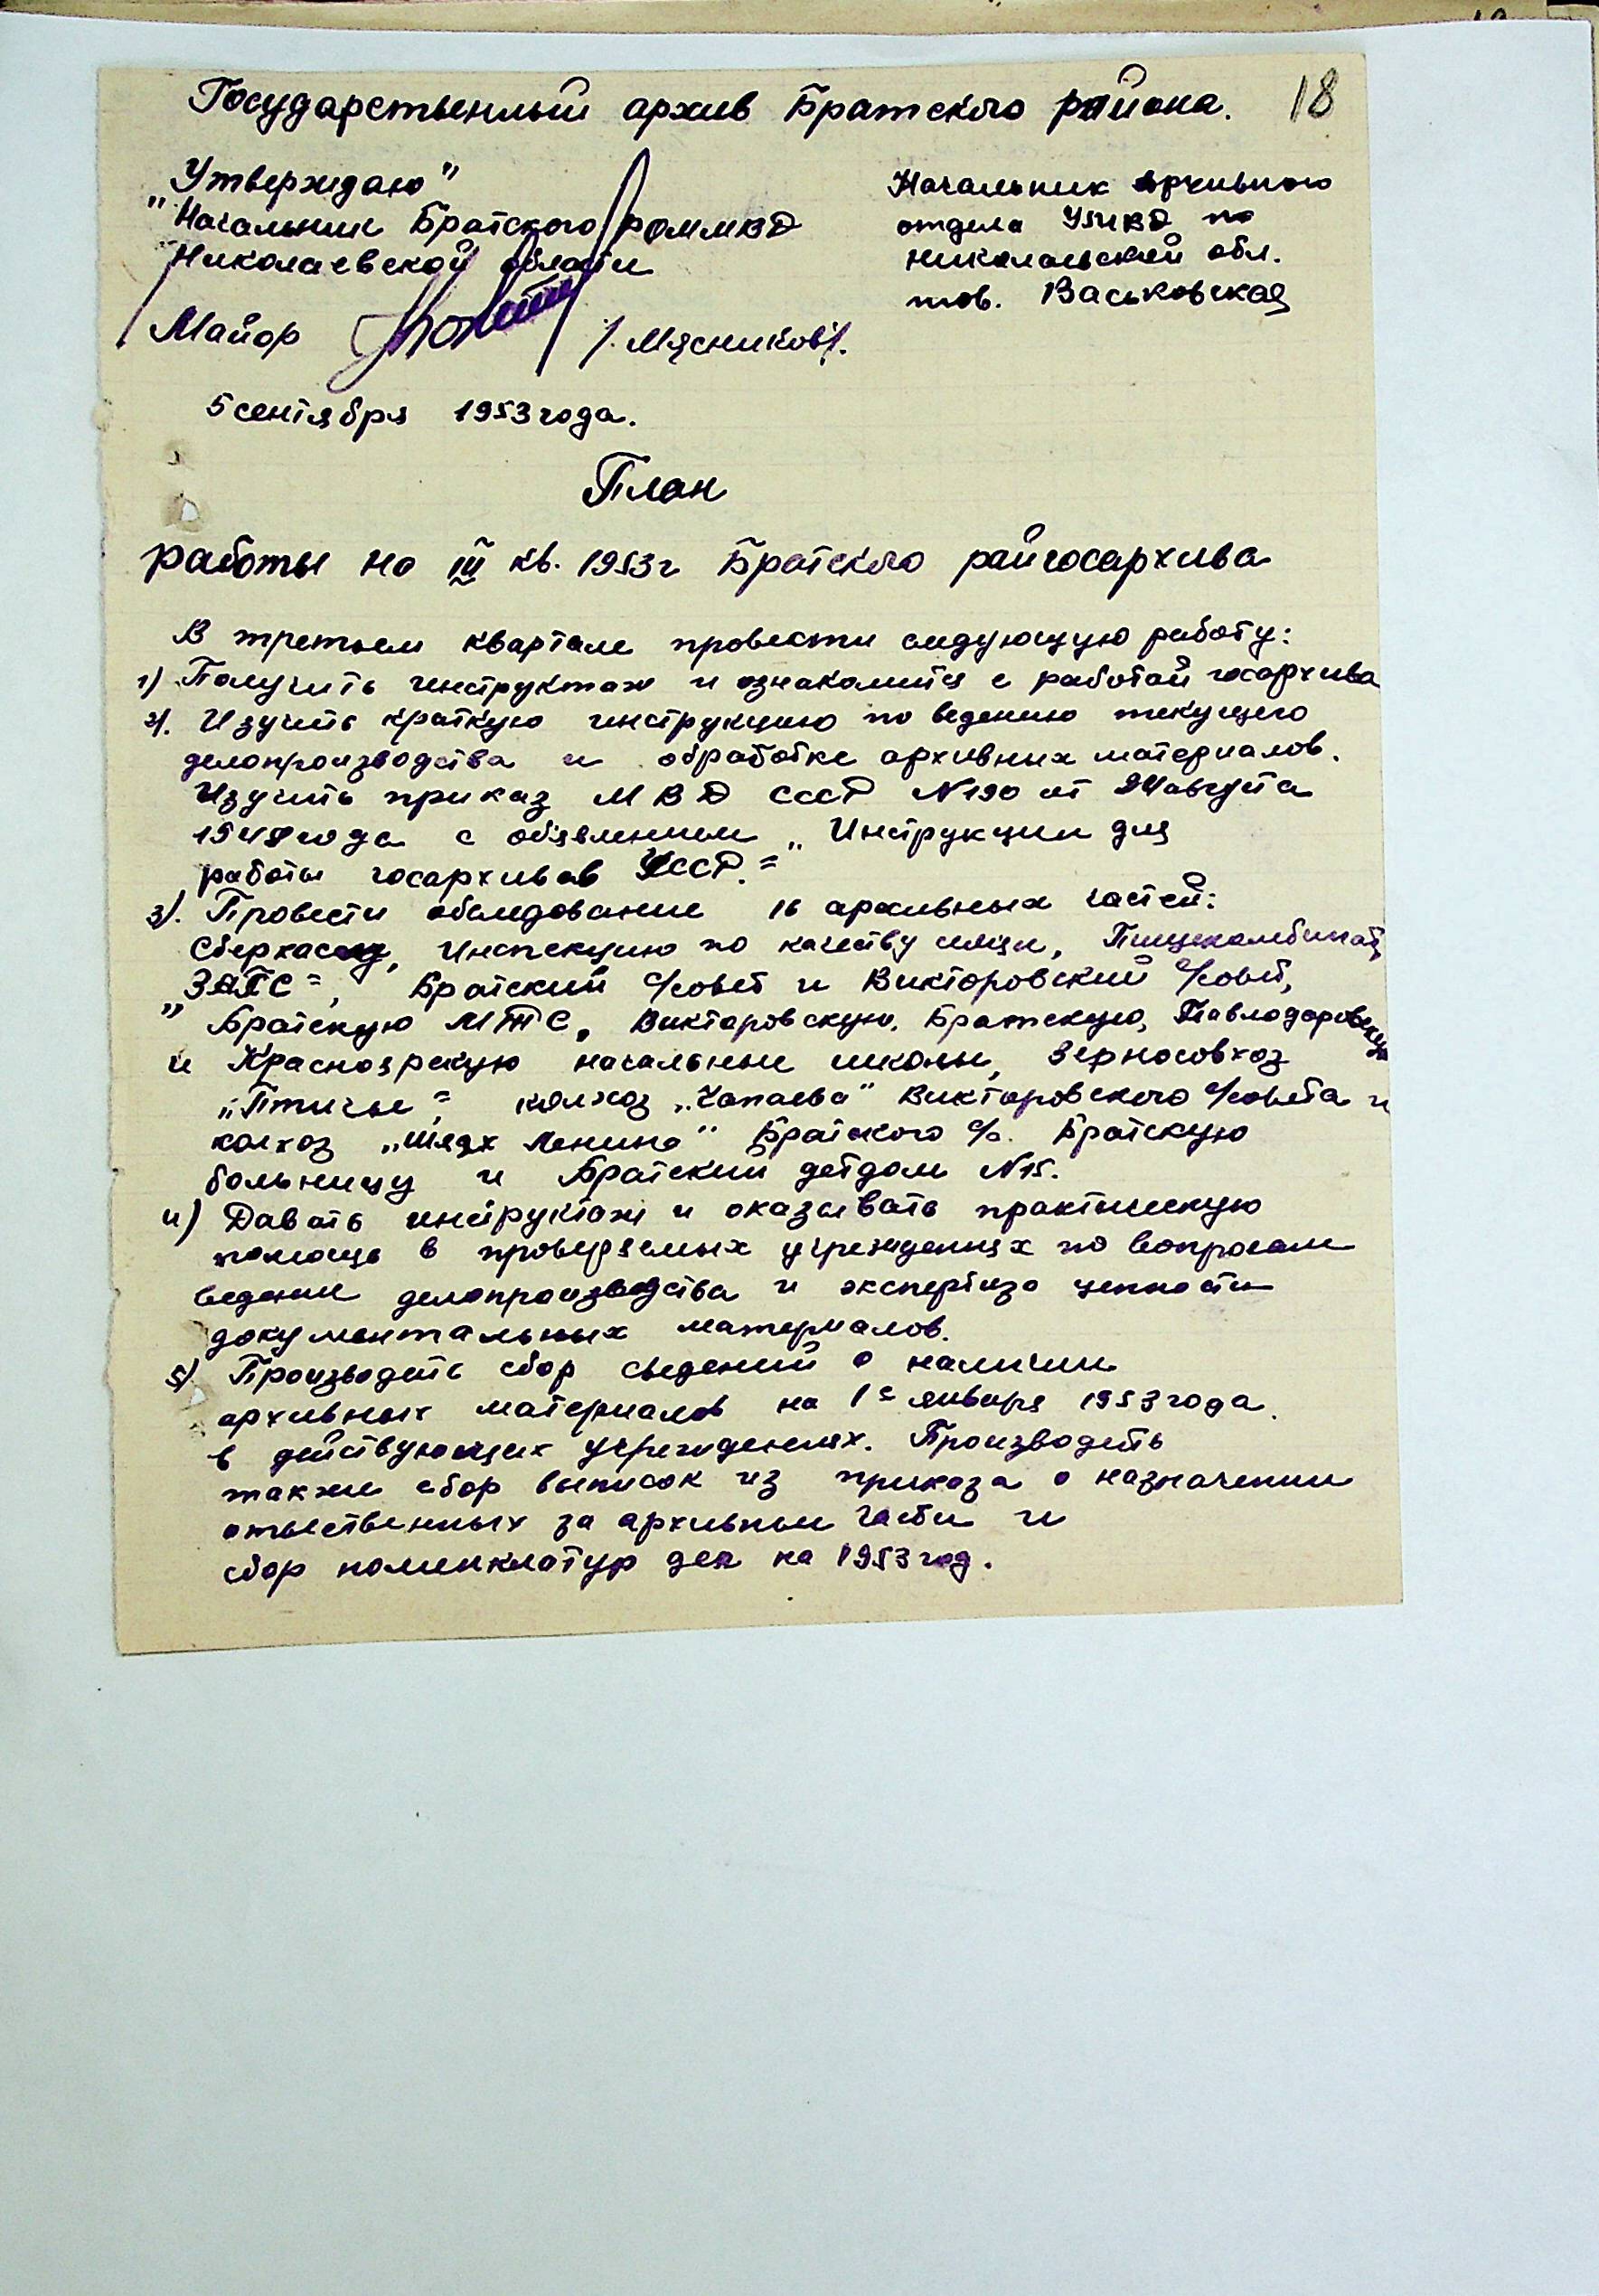 Государственный архив Братского района. 18
„Утверждаю"
Начальник Братского РОММВД
Николаевской области
Майор /Мясников/.
Начальник архивного
отдела УМВД по
николаевской обл.
тов. Васьковская
5 сентября 1953 года.
План
работы на III кв. 1953г Братского райгосархива
В третьем квартале провести следующую работу:
1) Получить инструктаж и ознакомится с работой госархива
2). Изучить краткую инструкцию по ведению текущего
делопроизводства и обработке архивных материалов.
Изучить приказ МВД СССР №190 от 24 августа
1948 года с обявлением „Инструкции для
работы госархивов УССР."
3). Провести обследование 16 архивных частей:
Сберкассу, Инспекцию по качеству семян, Пищекомбинат,
„ЗАГС", Братский с/совет и Викторовский с/совет,
Братскую МТС, Викторовскую, Братскую, Павлодаровскую
и Красноярскую начальные школы, Зерносовхоз
„Птичье", колхоз „Чапаева" Викторовского с/совета и
колхоз „Шлях Ленина" Братского с/с. Братскую
больницу и Братский детдом №15.
4) Давать инструктаж и оказывать практическую
помощь в проверяемых учреждениях по вопросам
ведения делопроизводства и экспертиза ценности
документальных материалов.
5) Производить сбор сведений о наличии
архивных материалов на 1е января 1953 года
в действующих учреждениях. Производить
также сбор выписок из приказа о назначении
ответственных за архивные части и
сбор номенклатур дел на 1953 год.